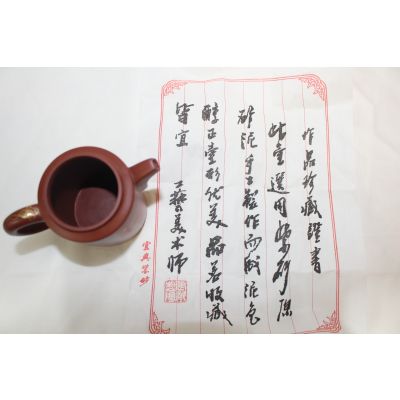 作品珍藏證書
此壺選用紫砂原
矿泥手工製作而成泥色
醇正壶形优美品茗收藏
皆宜 工藝美术师
宜興紫砂